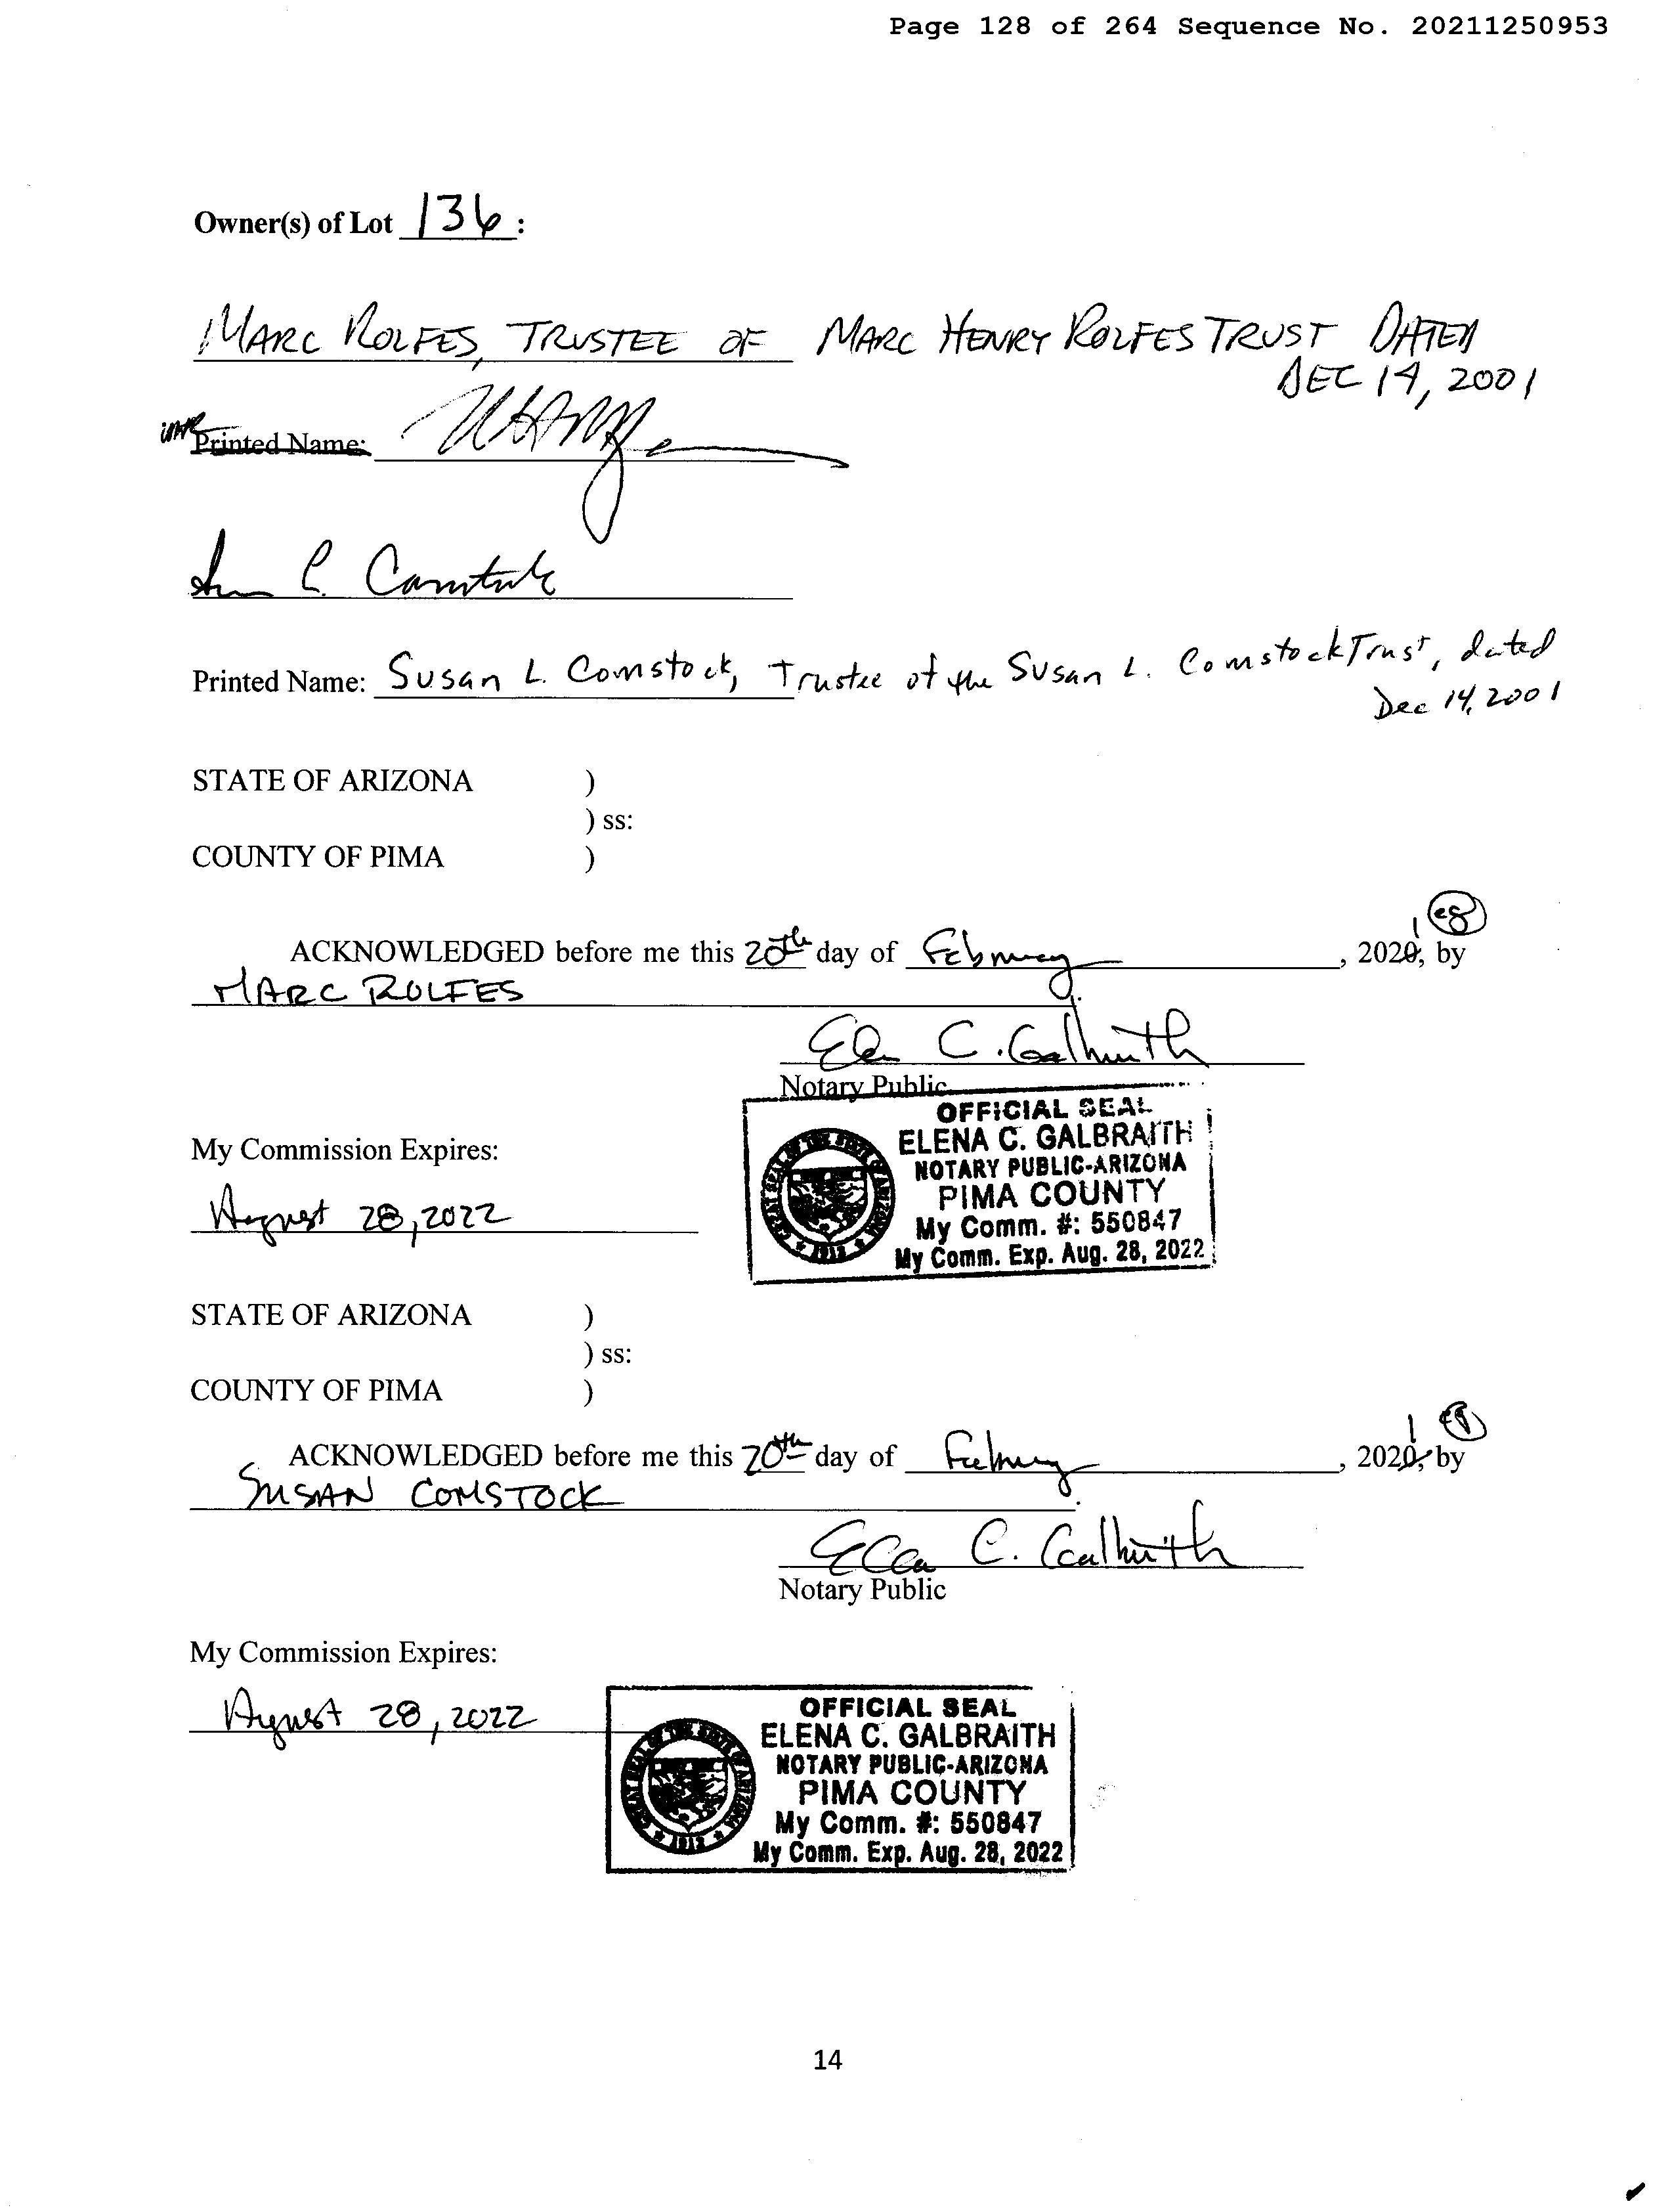 Page 128 of 264 Sequence No. 20211250953
Owner(s) of Lot 136 :
MARC ROLFES, TRUSTEE OF MARC HENRY ROLFES TRUST DATED
DEC 14, 2001
Printed Name:
Susan L. Comstock
Printed Name: Susan L. Comstock, Trustee of the Susan L. Comstock Trust, dated
Dec 14, 2001
STATE OF ARIZONA )
) ss:
COUNTY OF PIMA )
1 eg
ACKNOWLEDGED before me this 20th day of February, 2020, by
MARC ROLFES
Elena C. Galbraith
Notary Public
OFFICIAL SEAL
ELENA C. GALBRAITH
NOTARY PUBLIC-ARIZONA
PIMA COUNTY
My Comm. #: 550847
My Comm. Exp. Aug. 28, 2022
GREAT SEAL OF THE STATE OF ARIZONA
1912
My Commission Expires:
August 28, 2022
STATE OF ARIZONA )
) ss:
COUNTY OF PIMA )
1 eg
ACKNOWLEDGED before me this 20th day of February, 2020, by
SUSAN COMSTOCK
Elena C. Galbraith
Notary Public
My Commission Expires:
August 28, 2022
OFFICIAL SEAL
ELENA C. GALBRAITH
NOTARY PUBLIC-ARIZONA
PIMA COUNTY
My Comm. #: 550847
My Comm. Exp. Aug. 28, 2022
GREAT SEAL OF THE STATE OF ARIZONA
1912
14